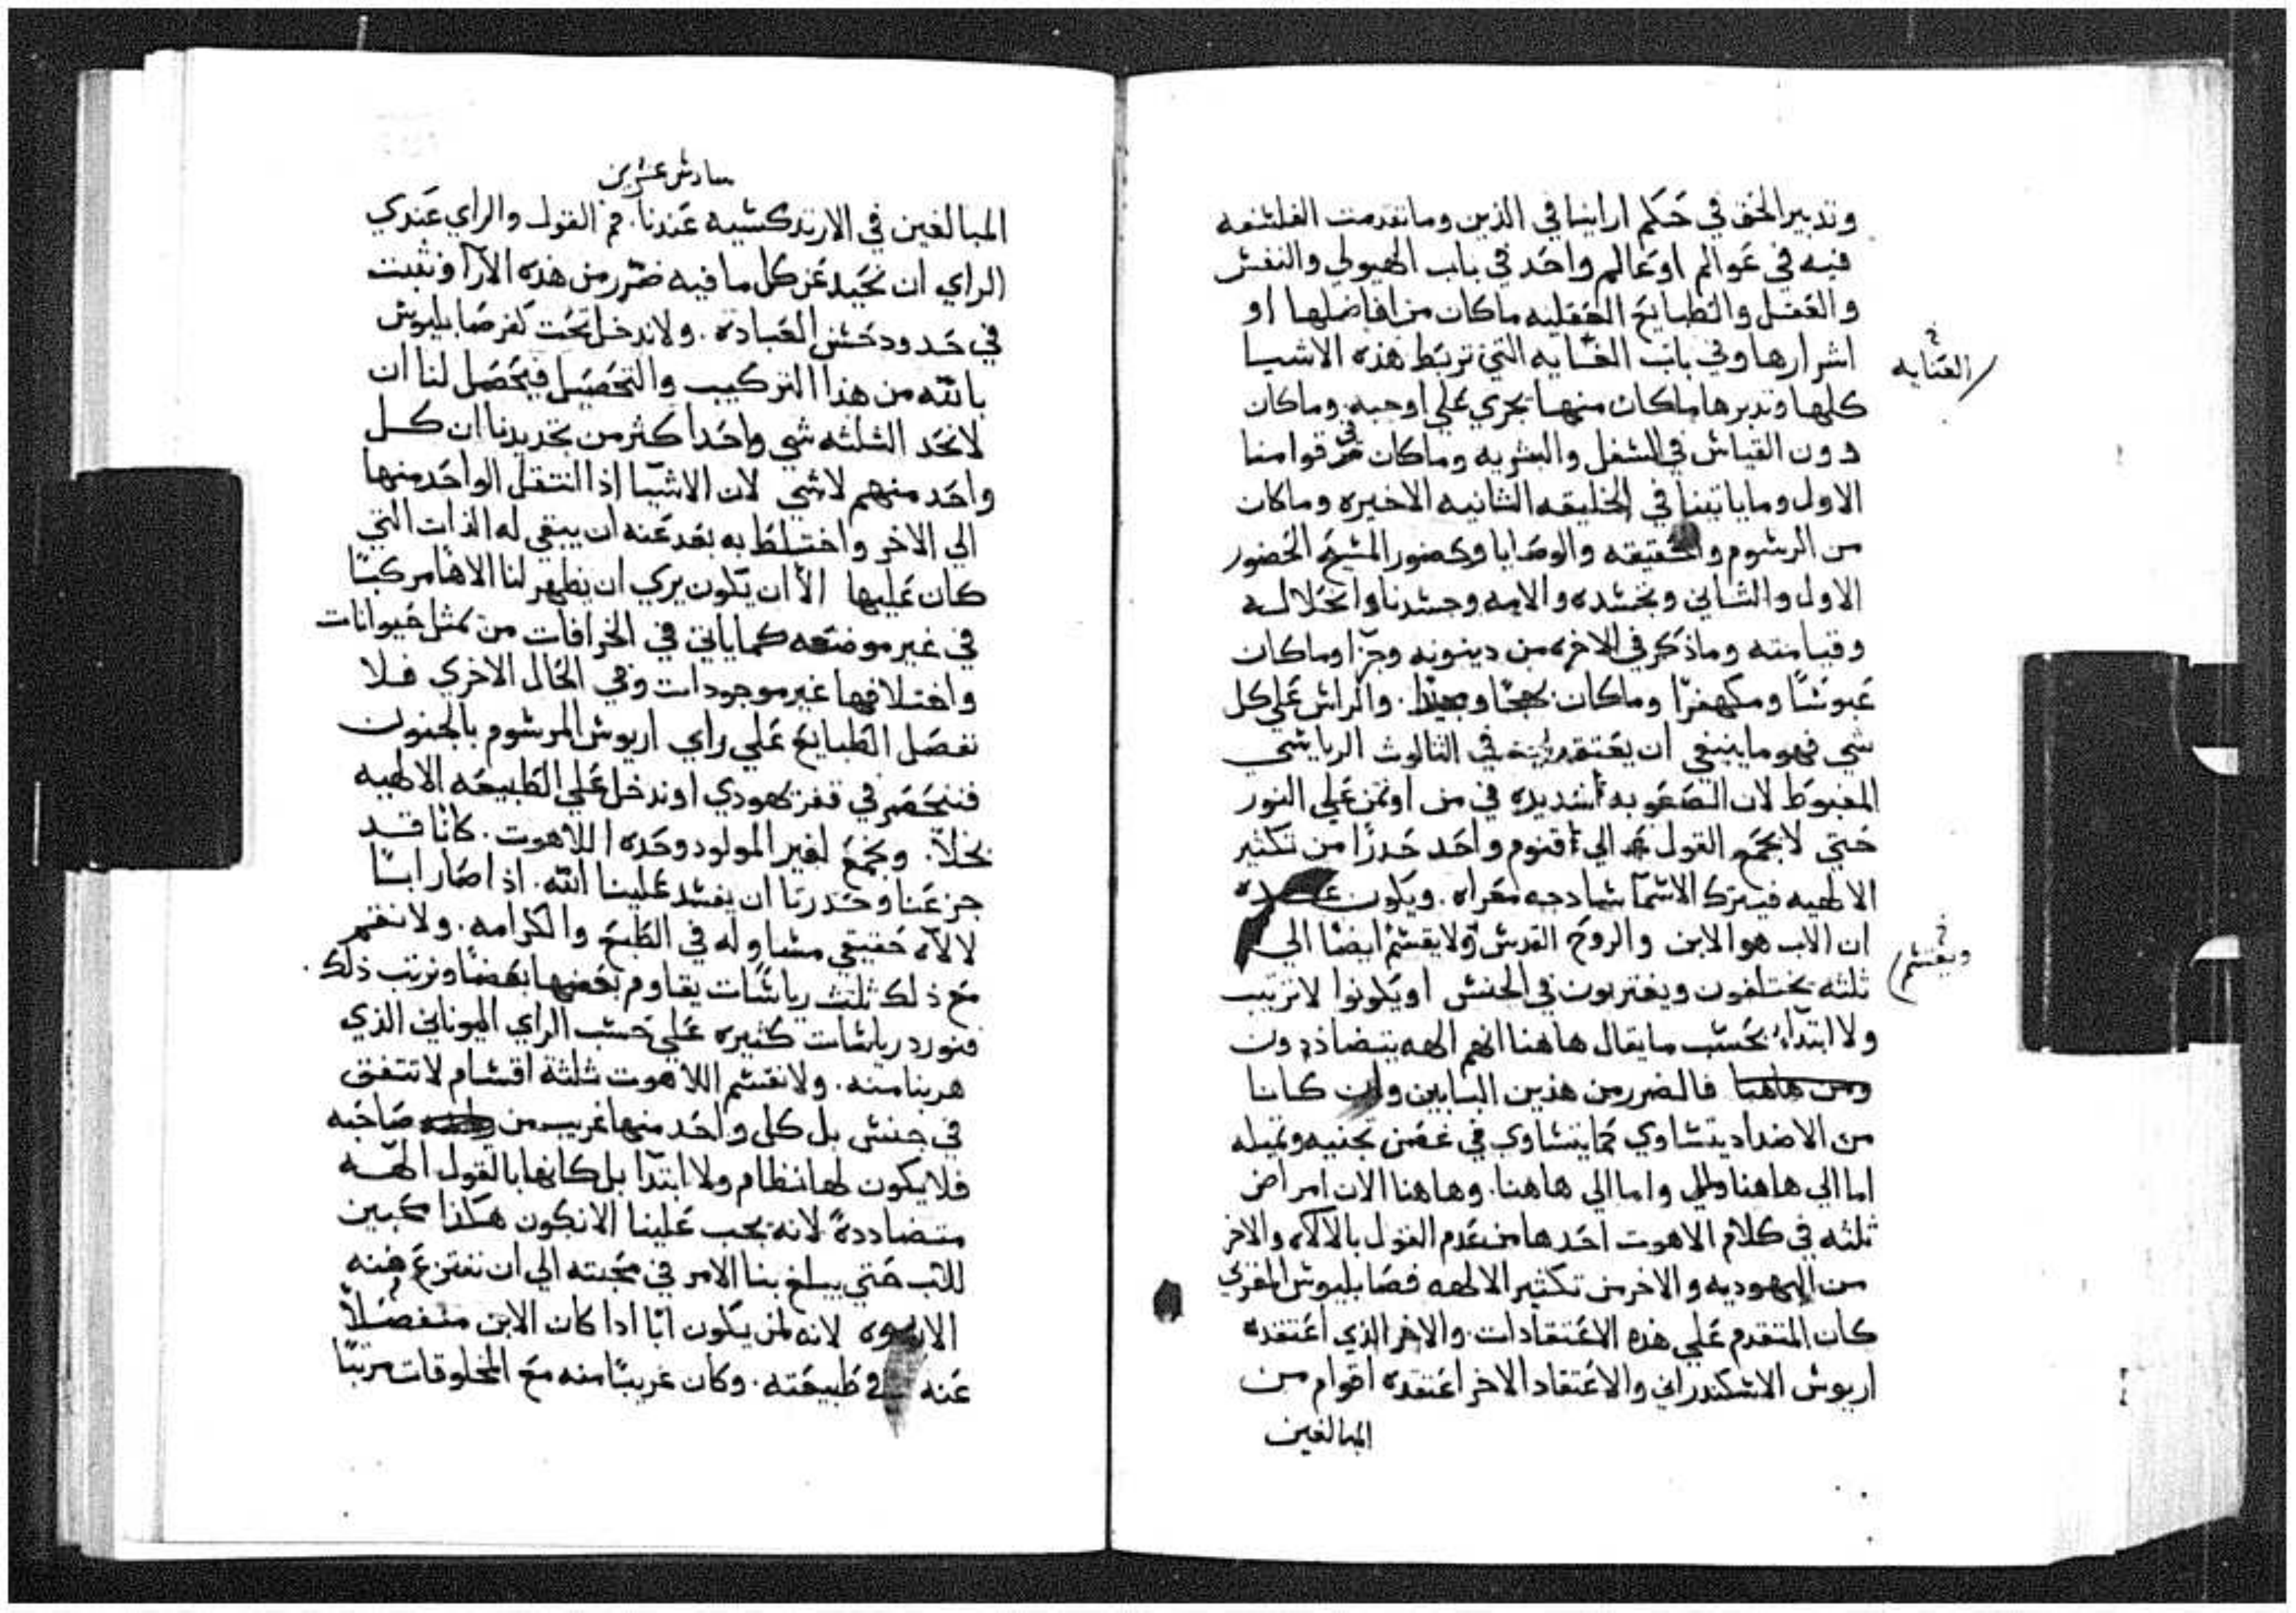 وتدبير الحق في حكم ارائنا في الذين وما تقدمت الفلسفه
فيه في عوالم او عالم واحد في باب الهيولي والنفس
والعقل والطبايع العقليه ما كان من افاضلها او
اشرارها وفي باب العنايه التي تربط هذه الاشيا
العنايه
كلها وتدبرها ما كان منها يجري علي اوجبه وما كان
دون القياس في السفل والعلويه وما كان في قوامنا
الاول وما ياتينا في الخليقه الثانيه الاخيره وما كان
من الرسوم والحقيقه والوصايا وحضور المسيح الحضور
الاول والثاني وتجسده والامه وجسدنا وانحلاله
وقيامته وما ذكر في الاخره من دينونه وجزا وما كان
عبوسًا ومكفهرًا وما كان بهجًا. والراس علي كل
شي فهو ما ينبغي ان يعتقد في الثالوث الرياسي
المغبوط لان الصعوبه شديده في من اوتمن علي النور
حتي لا يجمع القول الي اقنوم واحد حدرًا من تكثير
الالهيه فيترك الاسما سادجه معراه. ويكون
ان الاب هو الابن والروح القدس ولا يقسم ايضا الي
ويقسم
ثلثه يختلفون ويفترقون في الجنس او يكونوا لا ترتيب
ولا ابتداء بحسب ما يقال هاهنا انهم الهه يتضاددون
فالضرر من هذين البابين وان كانا
من الاضداد يتساوي كما يتساوي في غصن تجنيه وتميله
اما الي هاهنا واما الي هاهنا. وهاهنا الان امراض
ثلثه في كلام الاهوت احدها من عدم القول بالالاه والاخر
من اليهوديه والاخر من تكثير الالهه فصابليوس المغربي
كان المتقدم علي هذه الاعتقادات. والاخر الذي اعتقده
اريوس الاسكندراني والاعتقاد الاخر اعتقده اقوام من
المبالغين
سادس عشرين
المبالغين في الارتدكسيه عندنا. فم القول والراي عندي
الراي ان نحيد عن كل ما فيه ضرر من هذه الآرآ ونثبت
في حدود حسن العباده. ولا ندخل تحت كفر صابليوس
بالله من هذا التركيب والتحصيل فيحصل لنا ان
لا نحد الثلثه شي واحدا كثر من تحديدنا ان كل
واحد منهم لا شي لان الاشيا اذا انتقل الواحد منها
الي الاخر واختلط به بعد عنه ان يبقي له الذات التي
كان عليها الا ان يكون يري ان يظهر لنا الاها مركبًا
في غير موضعه كما ياتي في الخرافات من تمثل حيوانات
واختلافها غير موجودات وفي الحال الاخري فلا
نفصل الطبايع علي راي اريوس المرسوم بالجنون
فننحصر في قفر يهودي او ندخل علي الطبيعه الالهيه
بخلاً. ونجمع لغير المولود وحده اللاهوت. كانا قد
جزعنا وحدرنا ان يفسد علينا الله. اذ اصار ابنًا
لالاه حقيقي مساو له في الطبع والكرامه. ولا نقم
مع ذلك ثلث رياسات يقاوم بعضها بعضا ونرتب ذلك.
فنورد رياسات كثيره علي حسب الراي اليوناني الذي
هربنا منه. ولا نقسم اللاهوت ثلثة اقسام لا تتفق
في جنس بل كل واحد منها غريب من صاحبه
فلا يكون لها نظام ولا ابتدا بل كانها بالقول الهه
متضاددة لانه يجب علينا الا نكون هكذا محبين
للاب حتي يبلغ بنا الامر في محبته الي ان ننتزع منه
الابوه لانه لمن يكون ابًا اذا كان الابن منفصلاً
عنه في طبيعته. وكان غريبًا منه مع المخلوقات مرتبًا